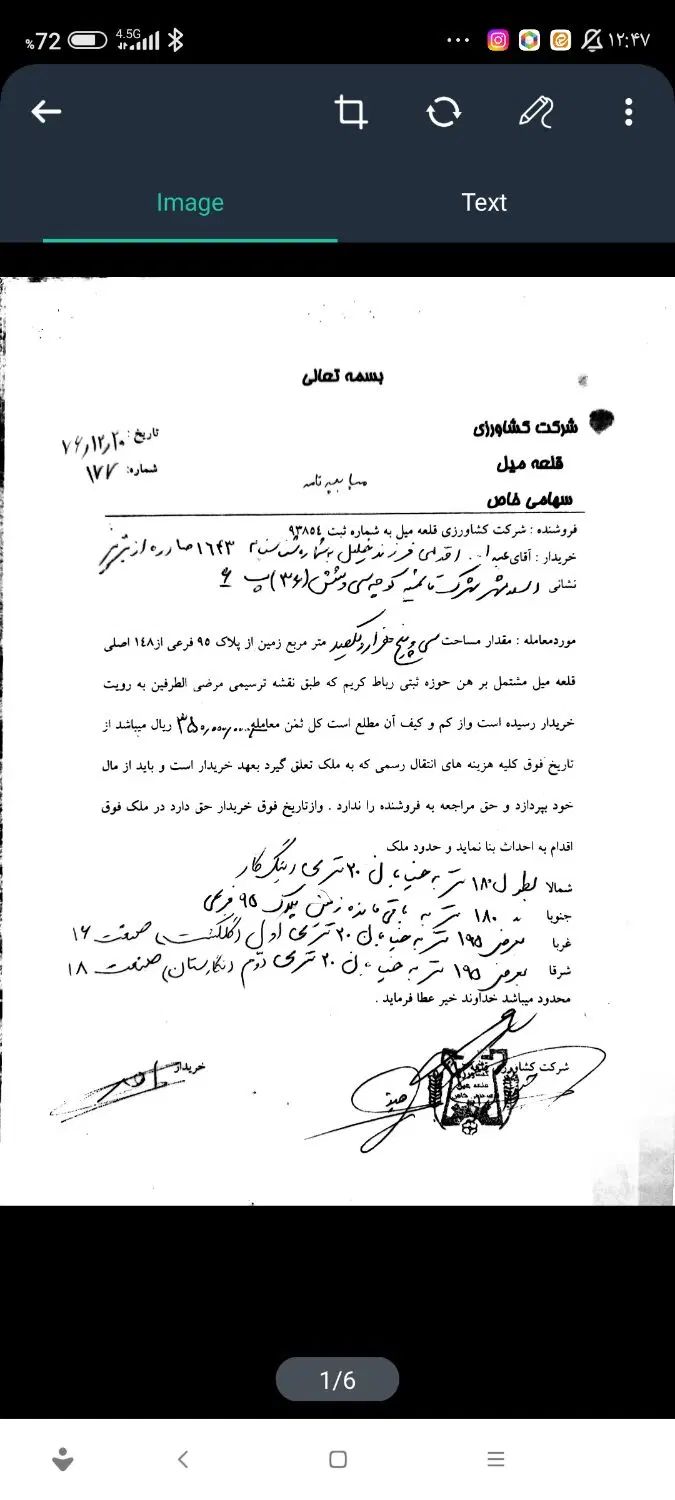 %72 4.5G ... ۱۲:۴۷
Image Text
بسمه تعالی
شرکت کشاورزی
قلعه میل
سهامی خاص
تاریخ: ۷۶/۱۲/۲۰
شماره: ۱۷۷
مبایعه نامه
فروشنده : شرکت کشاورزی قلعه میل به شماره ثبت ۹۳۸۵٤
خریدار : آقای عبدا... اقدامی فرزند خلیل به شماره شناسنامه ۱۶۴۳ صادره از تبریز
نشانی اسلامشهر شهرک قائمیه کوچه سی و شش (۳۶) پ ۶
موردمعامله : مقدار مساحت سی و پنج هزار و یکصد متر مربع زمین از پلاک ۹۵ فرعی از۱٤۸ اصلی
قلعه میل مشتمل بر هن حوزه ثبتی رباط کریم که طبق نقشه ترسیمی مرضی الطرفین به رویت
خریدار رسیده است واز کم و کیف آن مطلع است کل ثمن معامله ۳۵۰,۰۰۰,۰۰۰ ریال میباشد از
تاریخ فوق کلیه هزینه های انتقال رسمی که به ملک تعلق گیرد بعهد خریدار است و باید از مال
خود بپردازد و حق مراجعه به فروشنده را ندارد . وازتاریخ فوق خریدار حق دارد در ملک فوق
اقدام به احداث بنا نماید و حدود ملک
شمالا بطول ۱۸۰ متر به خیابان ۲۰ متری
جنوبا به ۱۸۰ متر به باقی مانده زمین پلاک ۹۵ فرعی
غربا بعرض ۱۹۵ متر به خیابان ۲۰ متری اول (گلگشت) صنعت ۱۶
شرقا بعرض ۱۹۵ متر به خیابان ۲۰ متری دوم (نگارستان) صنعت ۱۸
محدود میباشد خداوند خیر عطا فرماید .
شرکت کشاورزی قلعه
خریدار
1/6